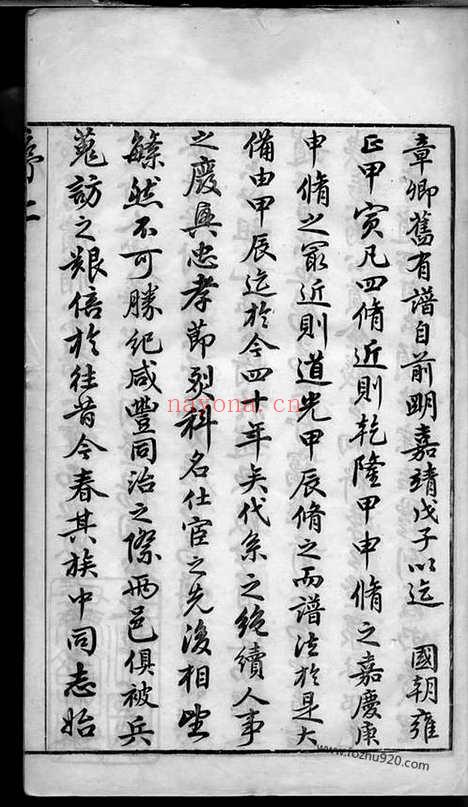 章卿舊有譜自前明嘉靖戊子以迄　國朝雍
正甲寅凡四脩近則乾隆甲申脩之嘉慶庚
申脩之冣近則道光甲辰脩之而譜法於是大
備由甲辰迄於今四十年矣代系之絶續人事
之慶興忠孝節烈科名仕宦之先後相望
緐然不可勝紀咸豐同治之際兩邑俱被兵
蒐訪之艱倍於往昔今春其族中同志始
序二
nayona.cn
www.fozhu920.com